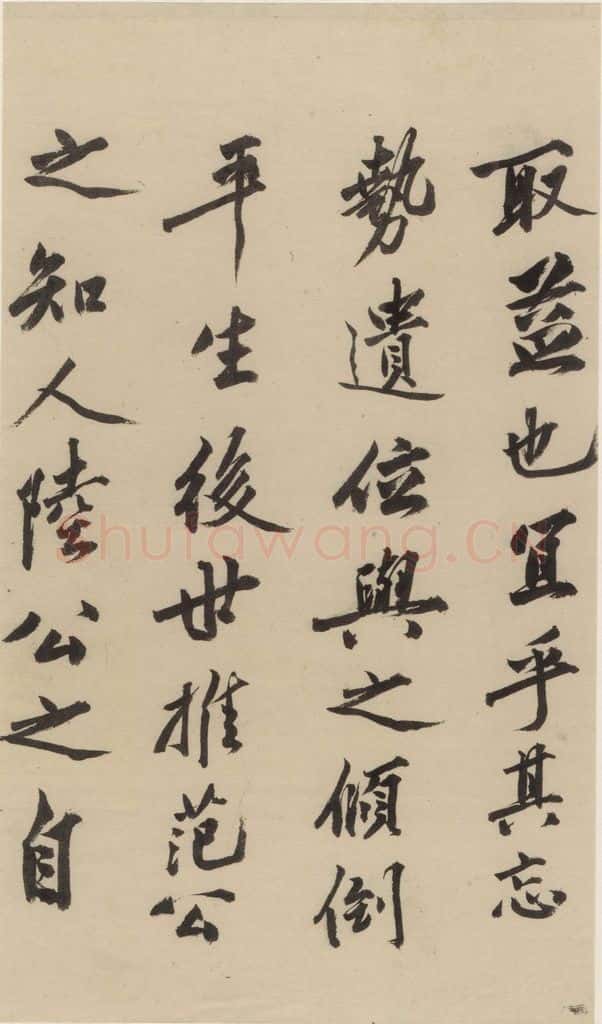 取益也宜乎其忘
勢遺位與之傾倒
平生後世推范公
之知人陸公之自
Shufawang.CN